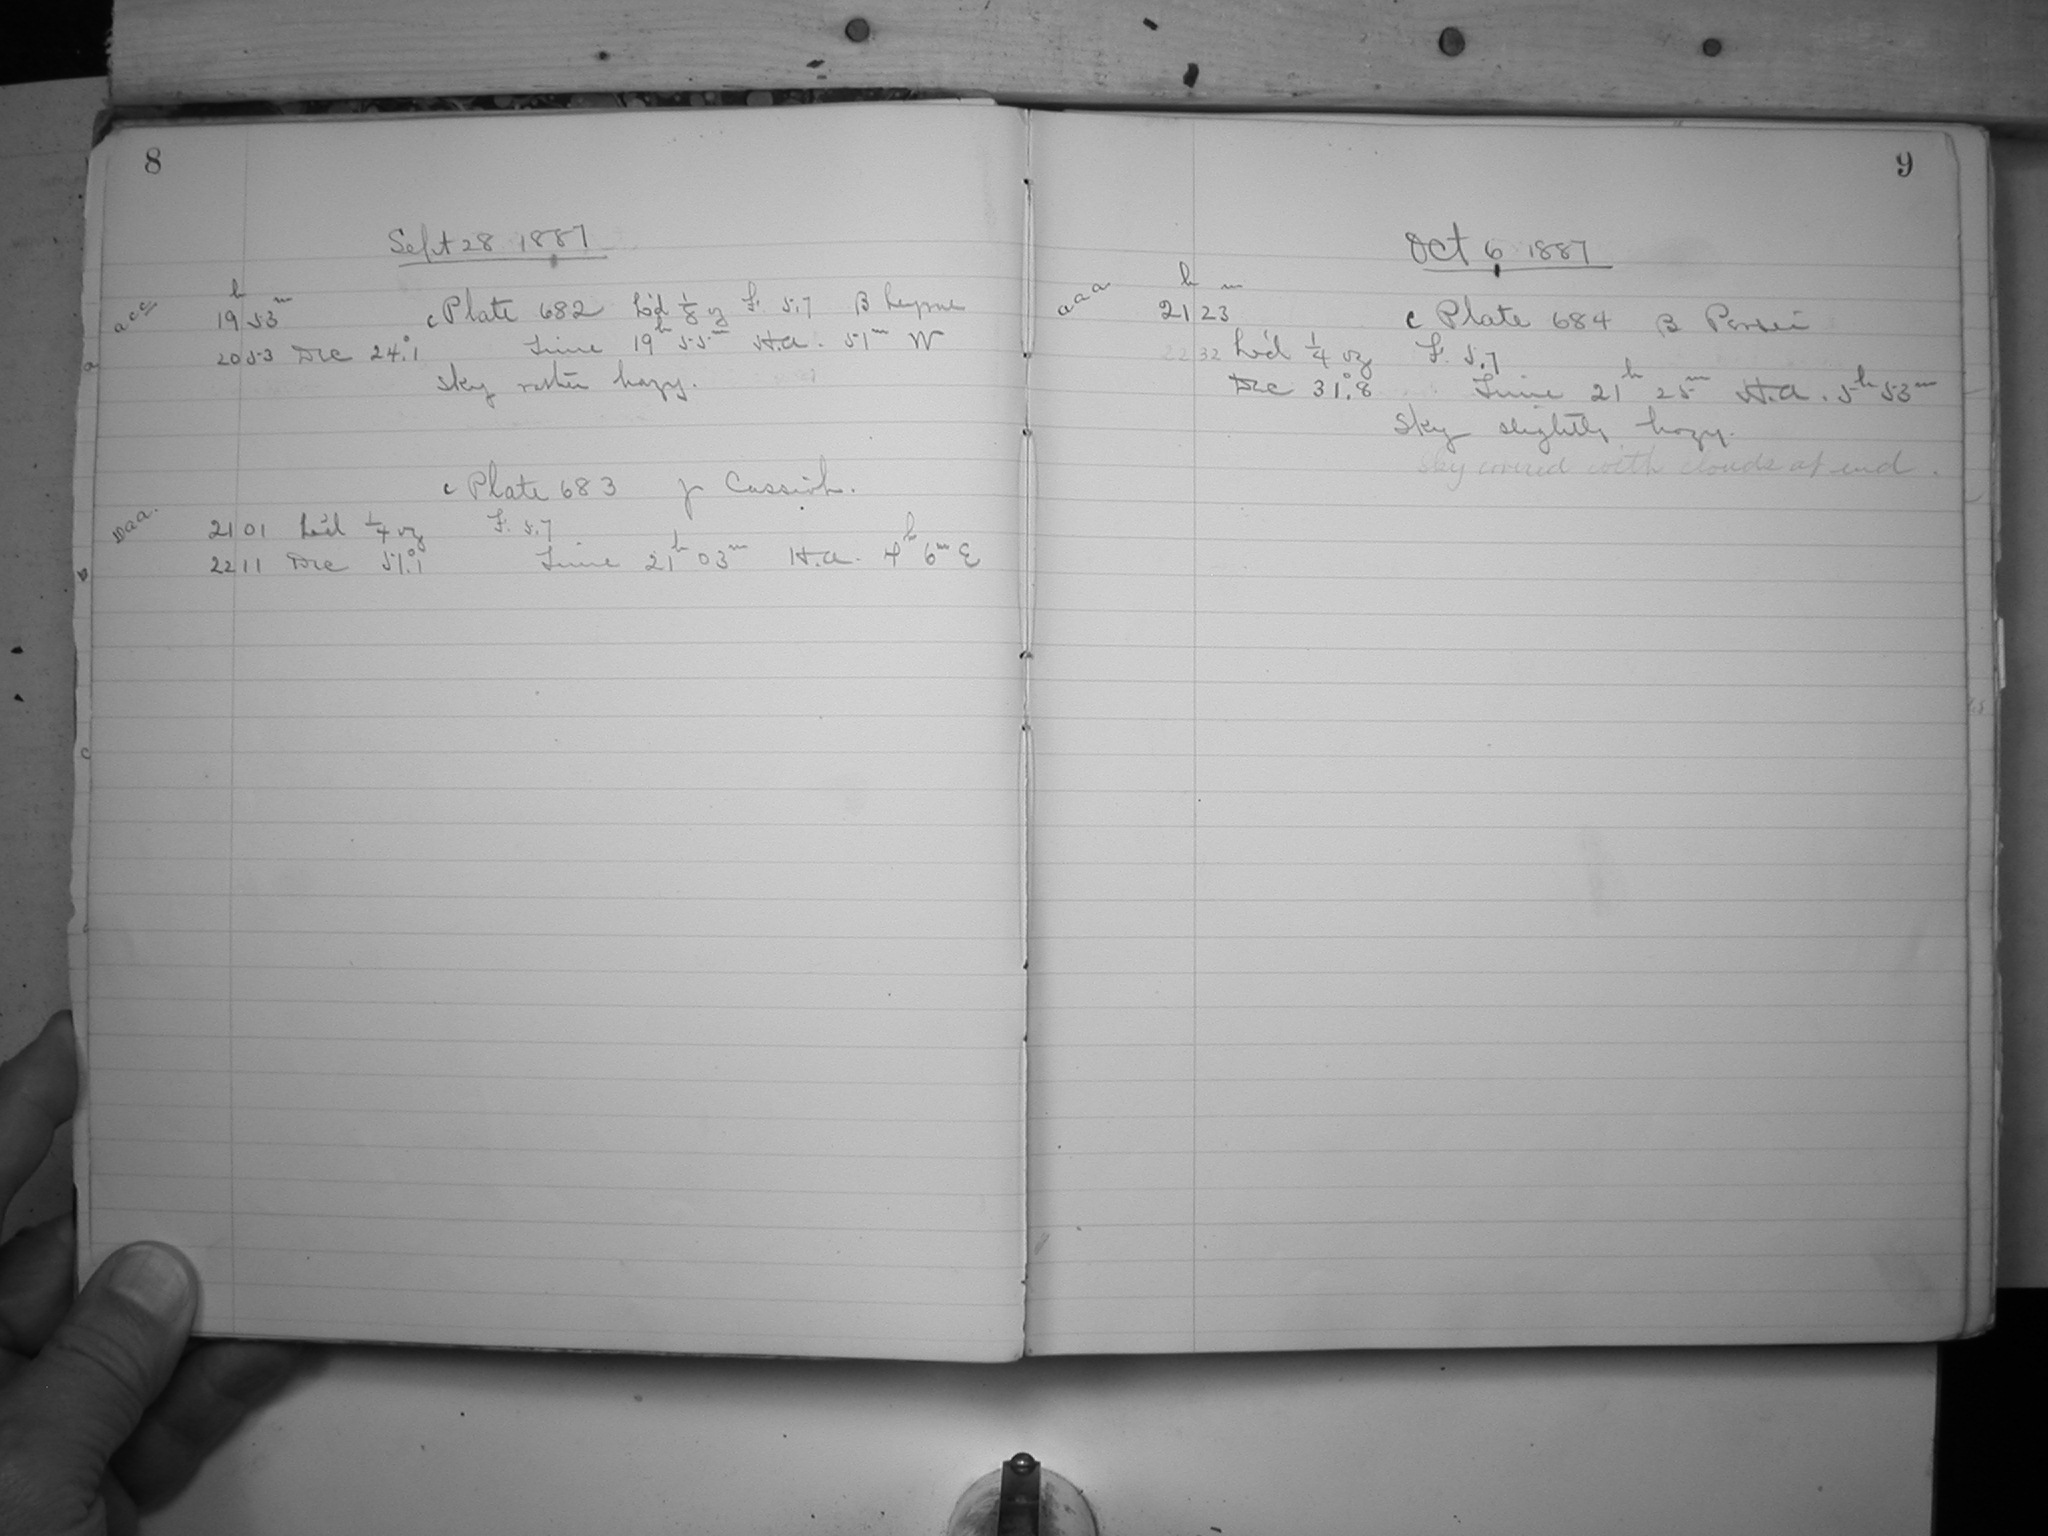 8
Sept 28 1887
h m
acc 19 53 c Plate 682 L'd 1/8 oz F. 5.7 β Cygne
a 20 53 Dec 24.°1 Time 19h 55m H.A. 51m W
Sky rather hazy.
c Plate 683 γ Cassiop.
aa. 21 01 L'd 1/4 oz F. 5.7
22 11 Dec 51.°1 Time 21h 03m H.A. 4h 6m E
c
9
Oct 6 1887
h m
aaa 21 23 c Plate 684 β Persei
22 32 L'd 1/4 oz F. 5.7
Dec 31.°8 Time 21h 25m H.A. 5h 53m
Sky slightly hazy.
Sky covered with clouds at end.